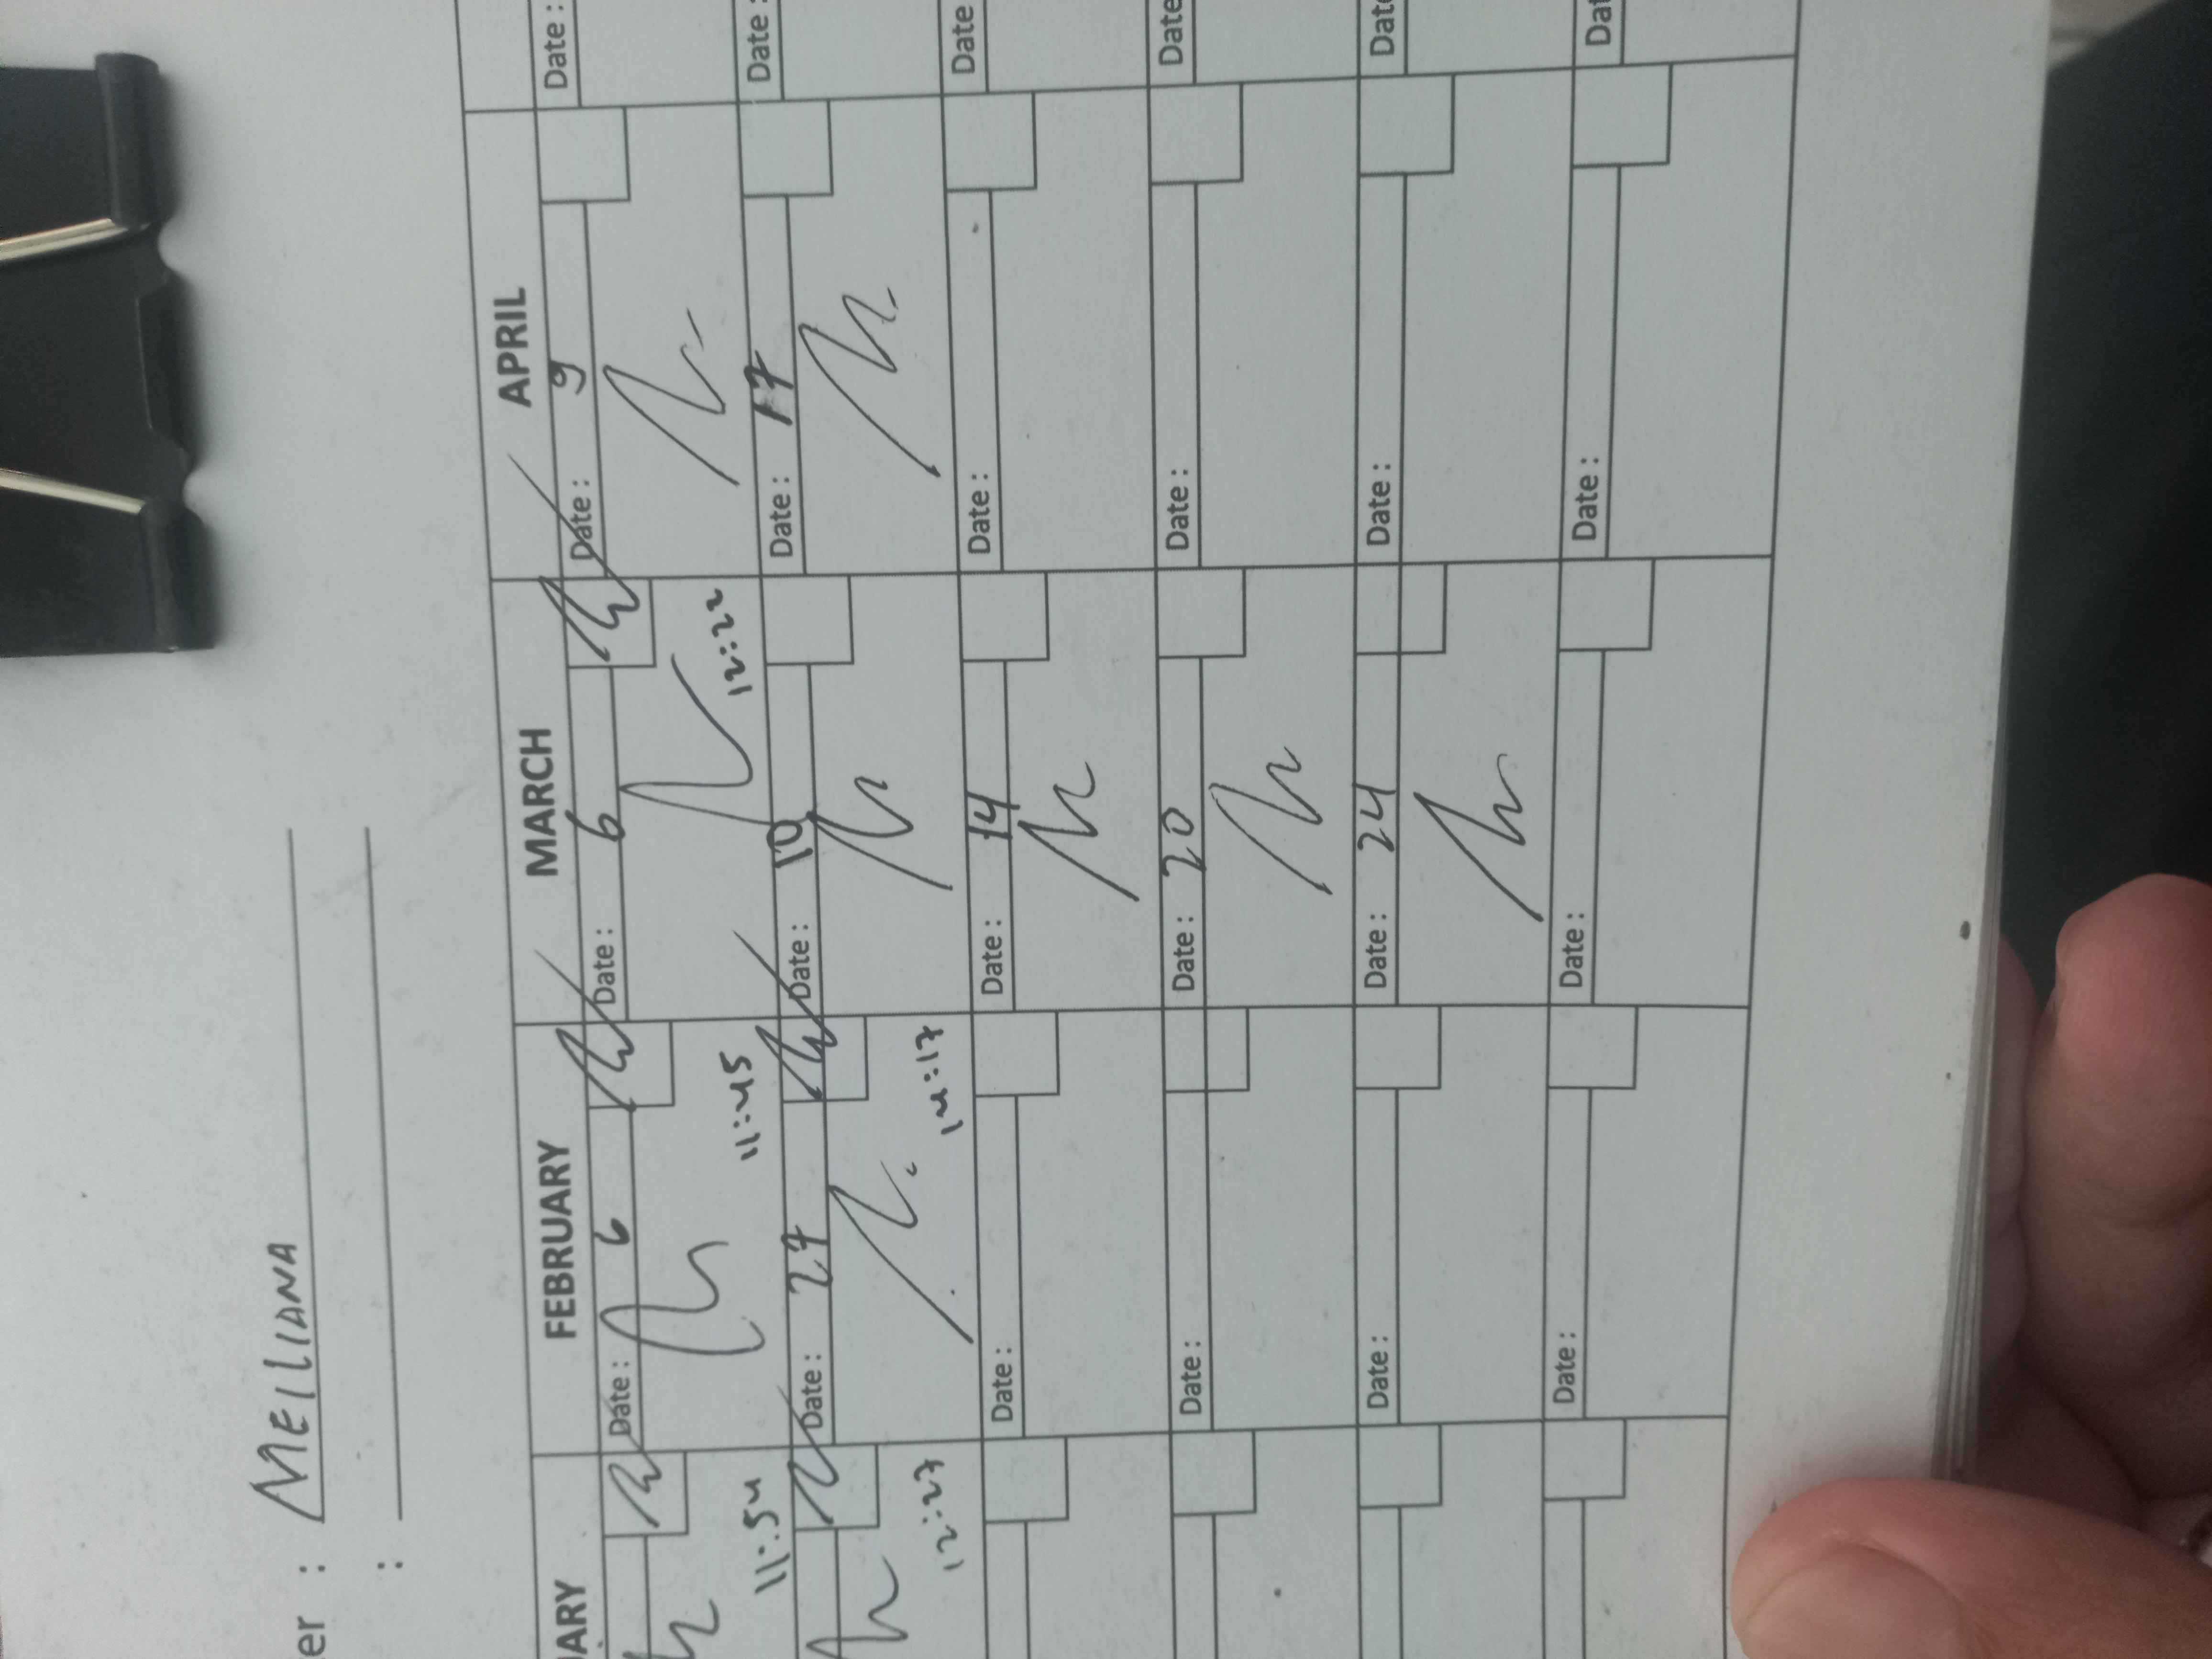 er : MEILIANA
:
UARY FEBRUARY MARCH APRIL
Date : 6 Date : 6 Date : 9 Date :
11:54 11:45 12:22
Date : 27 Date : 10 Date : 17 Date :
12:27 14:17
Date : Date : 14 Date : Date
Date : Date : 20 Date : Date
Date : Date : 24 Date : Date
Date : Date : Date : Dat